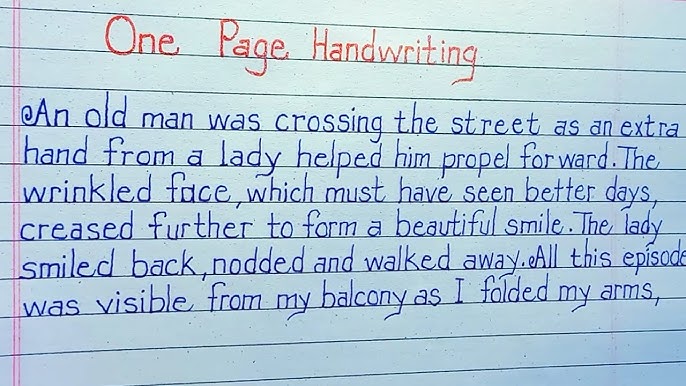 One Page Handwriting
An old man was crossing the street as an extra
hand from a lady helped him propel forward. The
wrinkled face, which must have seen better days,
creased further to form a beautiful smile. The lady
smiled back, nodded and walked away. All this episode
was visible from my balcony as I folded my arms,